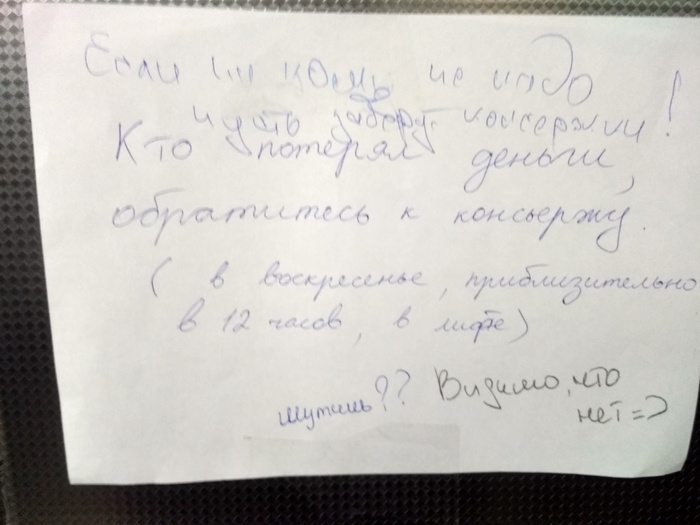 Если ни кому не надо
пусть заберут консержки!
Кто потерял деньги,
обратитесь к консьержу.
( в воскресенье, приблизительно
в 12 часов, в лифте)
шутишь?? Видимо, что
нет =)